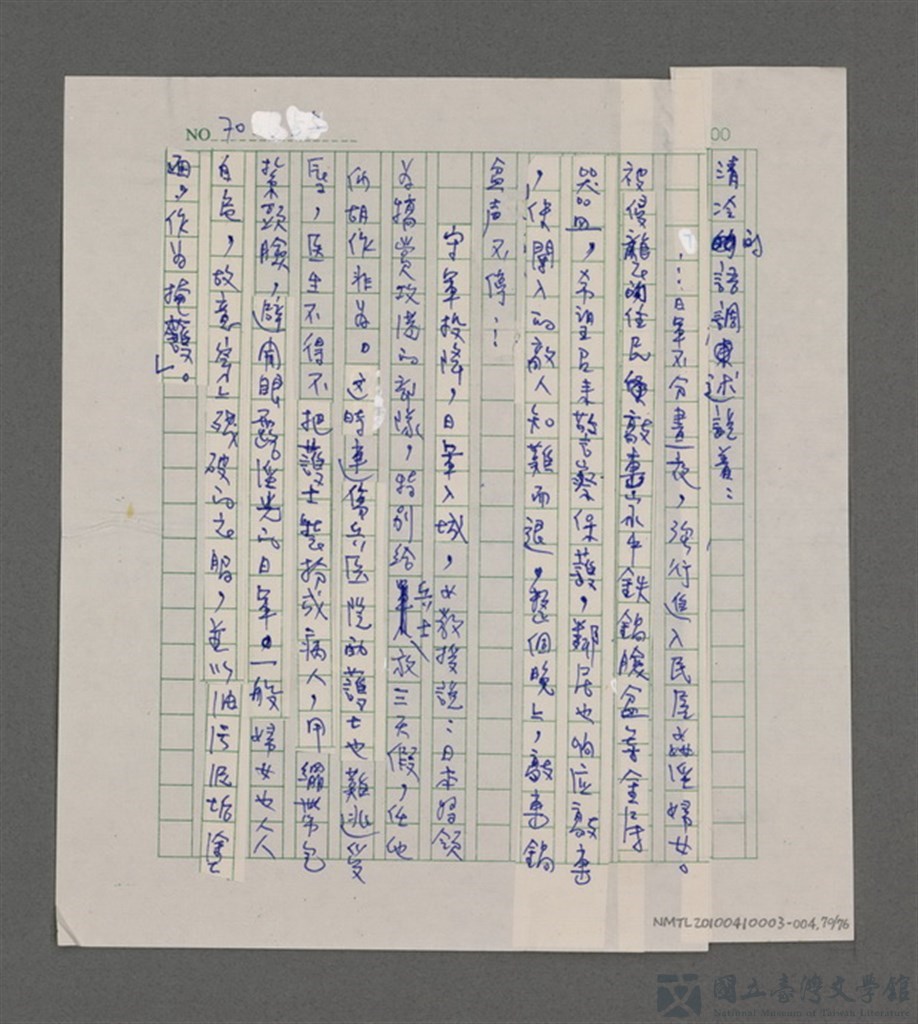 NO 70
00
清冷的語調東述說着：
：：日軍不分晝夜，強行進入民屋姦淫婦女。
被侵襲的住民敲擊水牛鉄鍋臉盆等金屬
器皿，希望召來警察保護，鄰居也响应敲擊
，使闖入的敵人知難而退，整個晚上，敲擊鍋
盆声不停：：
守軍投降，日軍入城，女教授說：日本將領
为犒賞攻港的部隊，特別給兵士放三天假，任他
们胡作非为。这時連傷兵医院的護士也難逃受
辱，医生不得不把護士裝扮成病人，用繃帶包
紮頭臉，避開眼露淫光的日軍。一般婦女也人人
自危，故意穿上殘破的衣服，並以油污泥垢塗
面，作为掩護。」
NMTL20100410003-004.70/76
國立臺灣文學館
National Museum of Taiwan Literature